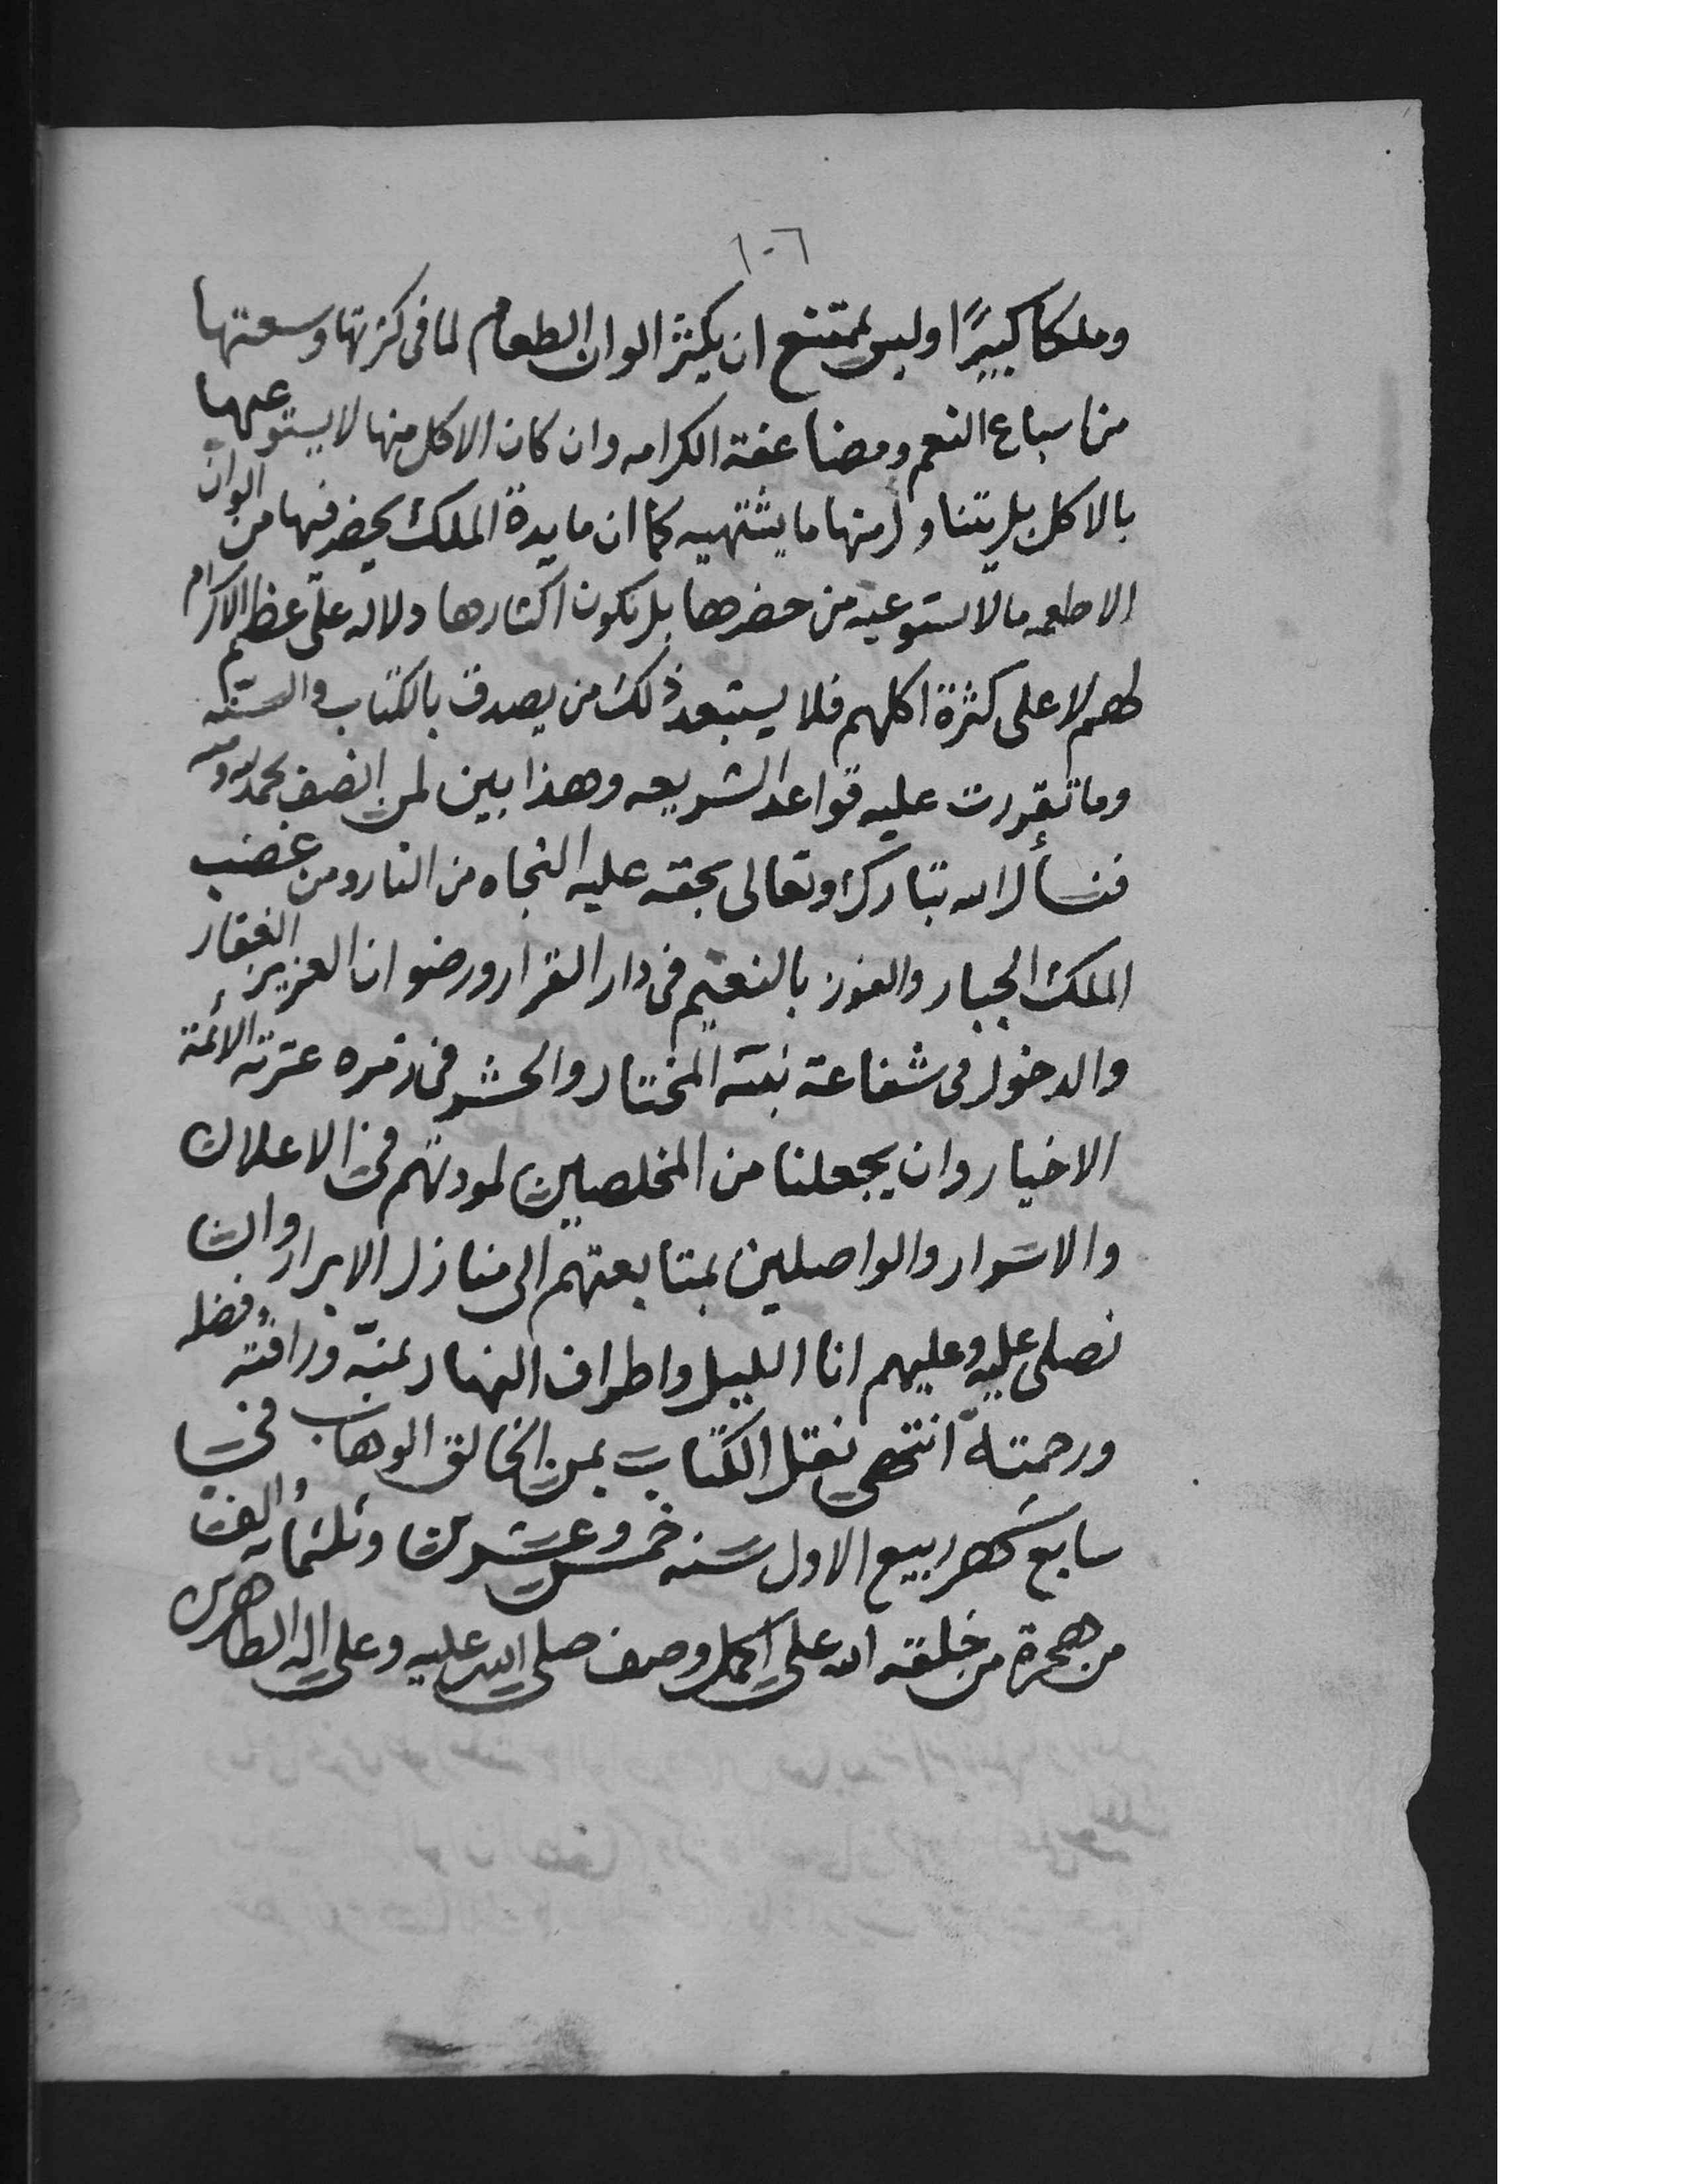 ١٠٦
وملكا كبيرًا وليس بممتنع ان يكثر الوان الطعام لما فى كثرتها وسعتها
من اسباع النعم ومضاعفة الكرامه وان كان الاكل منها لا يستوعبها
بالاكل بل يتناول منها ما يشتهيه كما ان مايدة الملك يحضر فيها من الوان
الاطعمه مالا يستوعبه من حضرها بل يكون اكثارها دلاله على عظم الاكرام
لهم لا على كثرة اكلهم فلا يستبعد ذلك من يصدق بالكتاب والسنّه
وما تقررت عليه قواعد الشريعه وهذا بين لمن انصف بحمد الله ومنه
فنسأل الله تبارك وتعالى بحقه عليه النجاه من النار ومن غضب
الملك الجبار والفوز بالنعيم فى دار القرار ورضوان العزيز الغفار
والدخول فى شفاعة نبيّه المختار والحشر فى زمره عترته الائمة
الاخيار وان يجعلنا من المخلصين لمودتهم فى الاعلان
والاسرار والواصلين بمتابعتهم الى منازل الابرار وان
نصلى عليه وعليهم انا الليل واطراف النهار بمنّه ورافته وفضله
ورحمته انتهى نقل الكتاب بمن الخالق الوهاب فى
سابع شهر ربيع الاول سنه خمس وعشرين وثلثمائه والف
من هجرة من خلقه الله على اكمل وصف صلى الله عليه وعلى اله الطاهرين